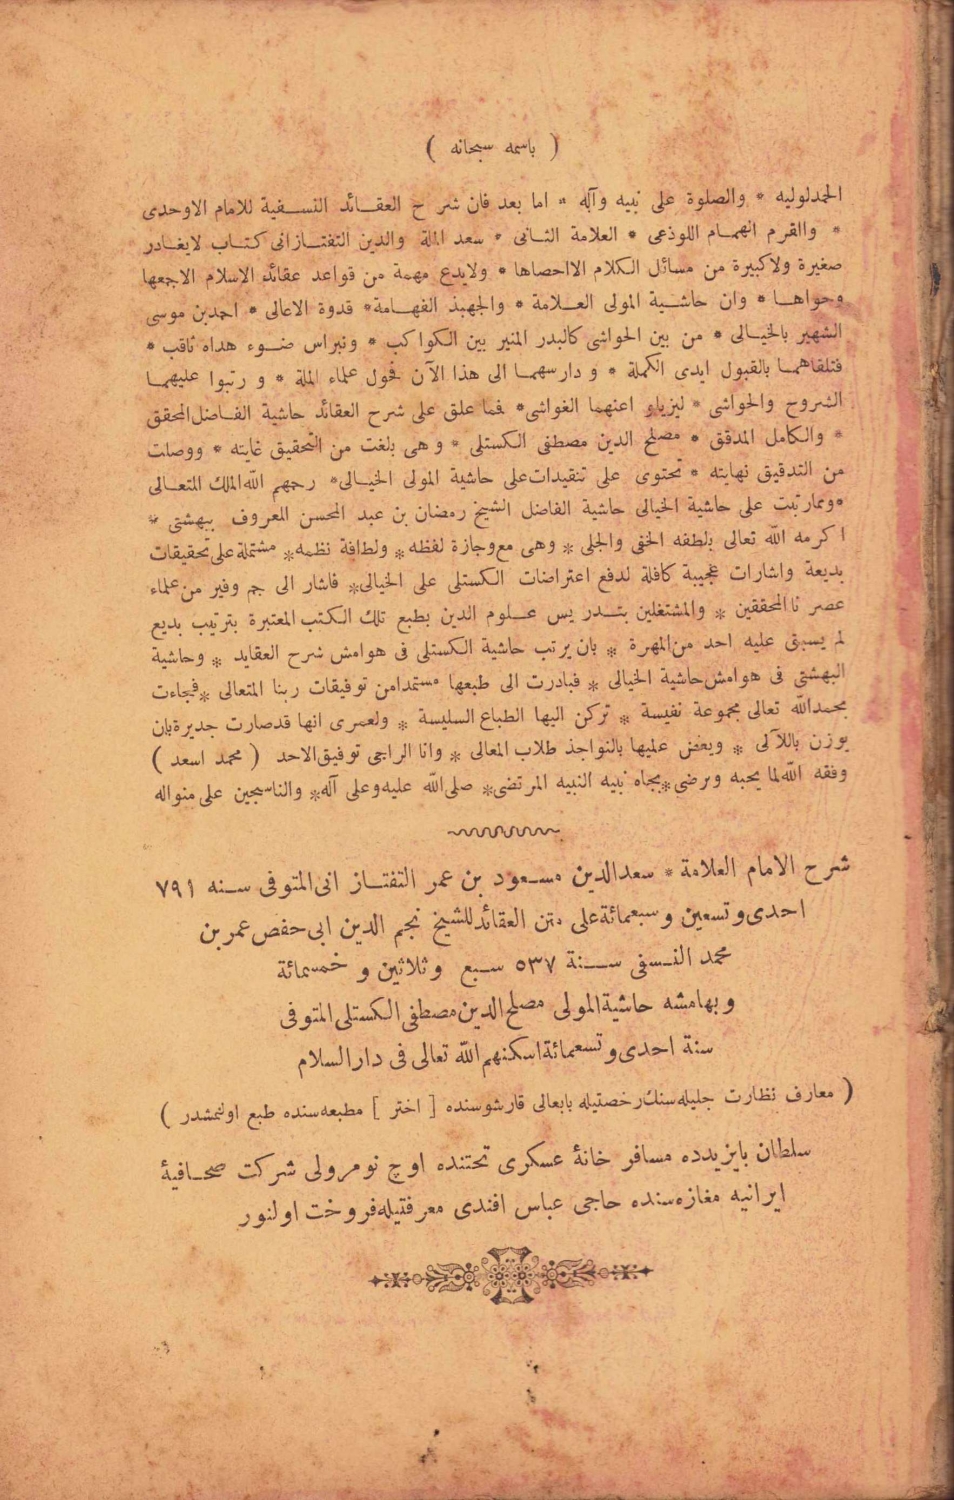 ( باسمه سبحانه )
الحمدلوليه * والصلوة على نبيه وآله * اما بعد فان شرح العقائد النسفية للامام الاوحدى
* والقرم الهمام اللوذعى * العلامة الثانى * سعد الملة والدين التفتازانى كتاب لايغادر
صغيرة ولاكبيرة من مسائل الكلام الااحصاها * ولايدع مهمة من قواعد عقائد الاسلام الاجمعها
وحواها * وان حاشية المولى العلامة * والجهبذ الفهامة* قدوة الاعالى * احمدبن موسى
الشهير بالخيالى * من بين الحواشى كالبدر المنير بين الكواكب * ونبراس ضوء هداه ثاقب *
فتلقاهما بالقبول ايدى الكملة * ودارسهما الى هذا الآن فحول علماء الملة * و رتبوا عليهما
الشروح والحواشى * ليزيلو اعنهما الغواشى* فما علق على شرح العقائد حاشية الفاضل المحقق
* والكامل المدقق * مصلح الدين مصطفى الكستلى * وهى بلغت من التحقيق غايته * ووصلت
من التدقيق نهايته * تحتوى على تنقيدات على حاشية المولى الخيالى* رحمهم الله الملك المتعالى
*ومما رتبت على حاشية الخيالى حاشية الفاضل الشيخ رمضان بن عبد المحسن المعروف ببهشتى *
اكرمه الله تعالى بلطفه الخفى والجلى * وهى مع وجازة لفظه* ولطافة نظمه* مشتملة على تحقيقات
بديعة واشارات عجيبة كافلة لدفع اعتراضات الكستلى على الخيالى* فاشار الى جم وفير من علماء
عصر نا المحققين * والمشتغلين بتدريس علوم الدين بطبع تلك الكتب المعتبرة بترتيب بديع
لم يسبق عليه احد من المهرة * بان يرتب حاشية الكستلى فى هوامش شرح العقايد * وحاشية
البهشتى فى هوامش حاشية الخيالى * فبادرت الى طبعها مستمدا من توفيقات ربنا المتعالى *فجاءت
بحمدالله تعالى مجموعة نفيسة * تركن اليها الطباع السليسة * ولعمرى انها قدصارت جديرة بان
يوزن باللآلى * ويعض عليها بالنواجذ طلاب المعالى * وانا الراجى توفيق الاحد ( محمد اسعد )
وفقه الله لما يحبه ويرضى*بجاه نبيه النبيه المرتضى* صلى الله عليه وعلى آله* والناسجين على منواله
شرح الامام العلامة * سعدالدين مسعود بن عمر التفتازانى المتوفى سنه ٧٩١
احدى وتسعين وسبعمائة على متن العقائد للشيخ نجم الدين ابى حفص عمر بن
محمد النسفى سنة ٥٣٧ سبع وثلاثين و خمسمائة
وبهامشه حاشية المولى مصلح الدين مصطفى الكستلى المتوفى
سنة احدى وتسعمائة اسكنهم الله تعالى فى دار السلام
( معارف نظارت جليله سنك رخصتيله بابعالى قارشوسنده [ اختر ] مطبعه سنده طبع اولنمشدر )
سلطان بايزيدده مسافر خانۀ عسكرى تحتنده اوچ نومرولى شركت صحافيۀ
ايرانيه مغازه سنده حاجى عباس افندى معرفتيله فروخت اولنور